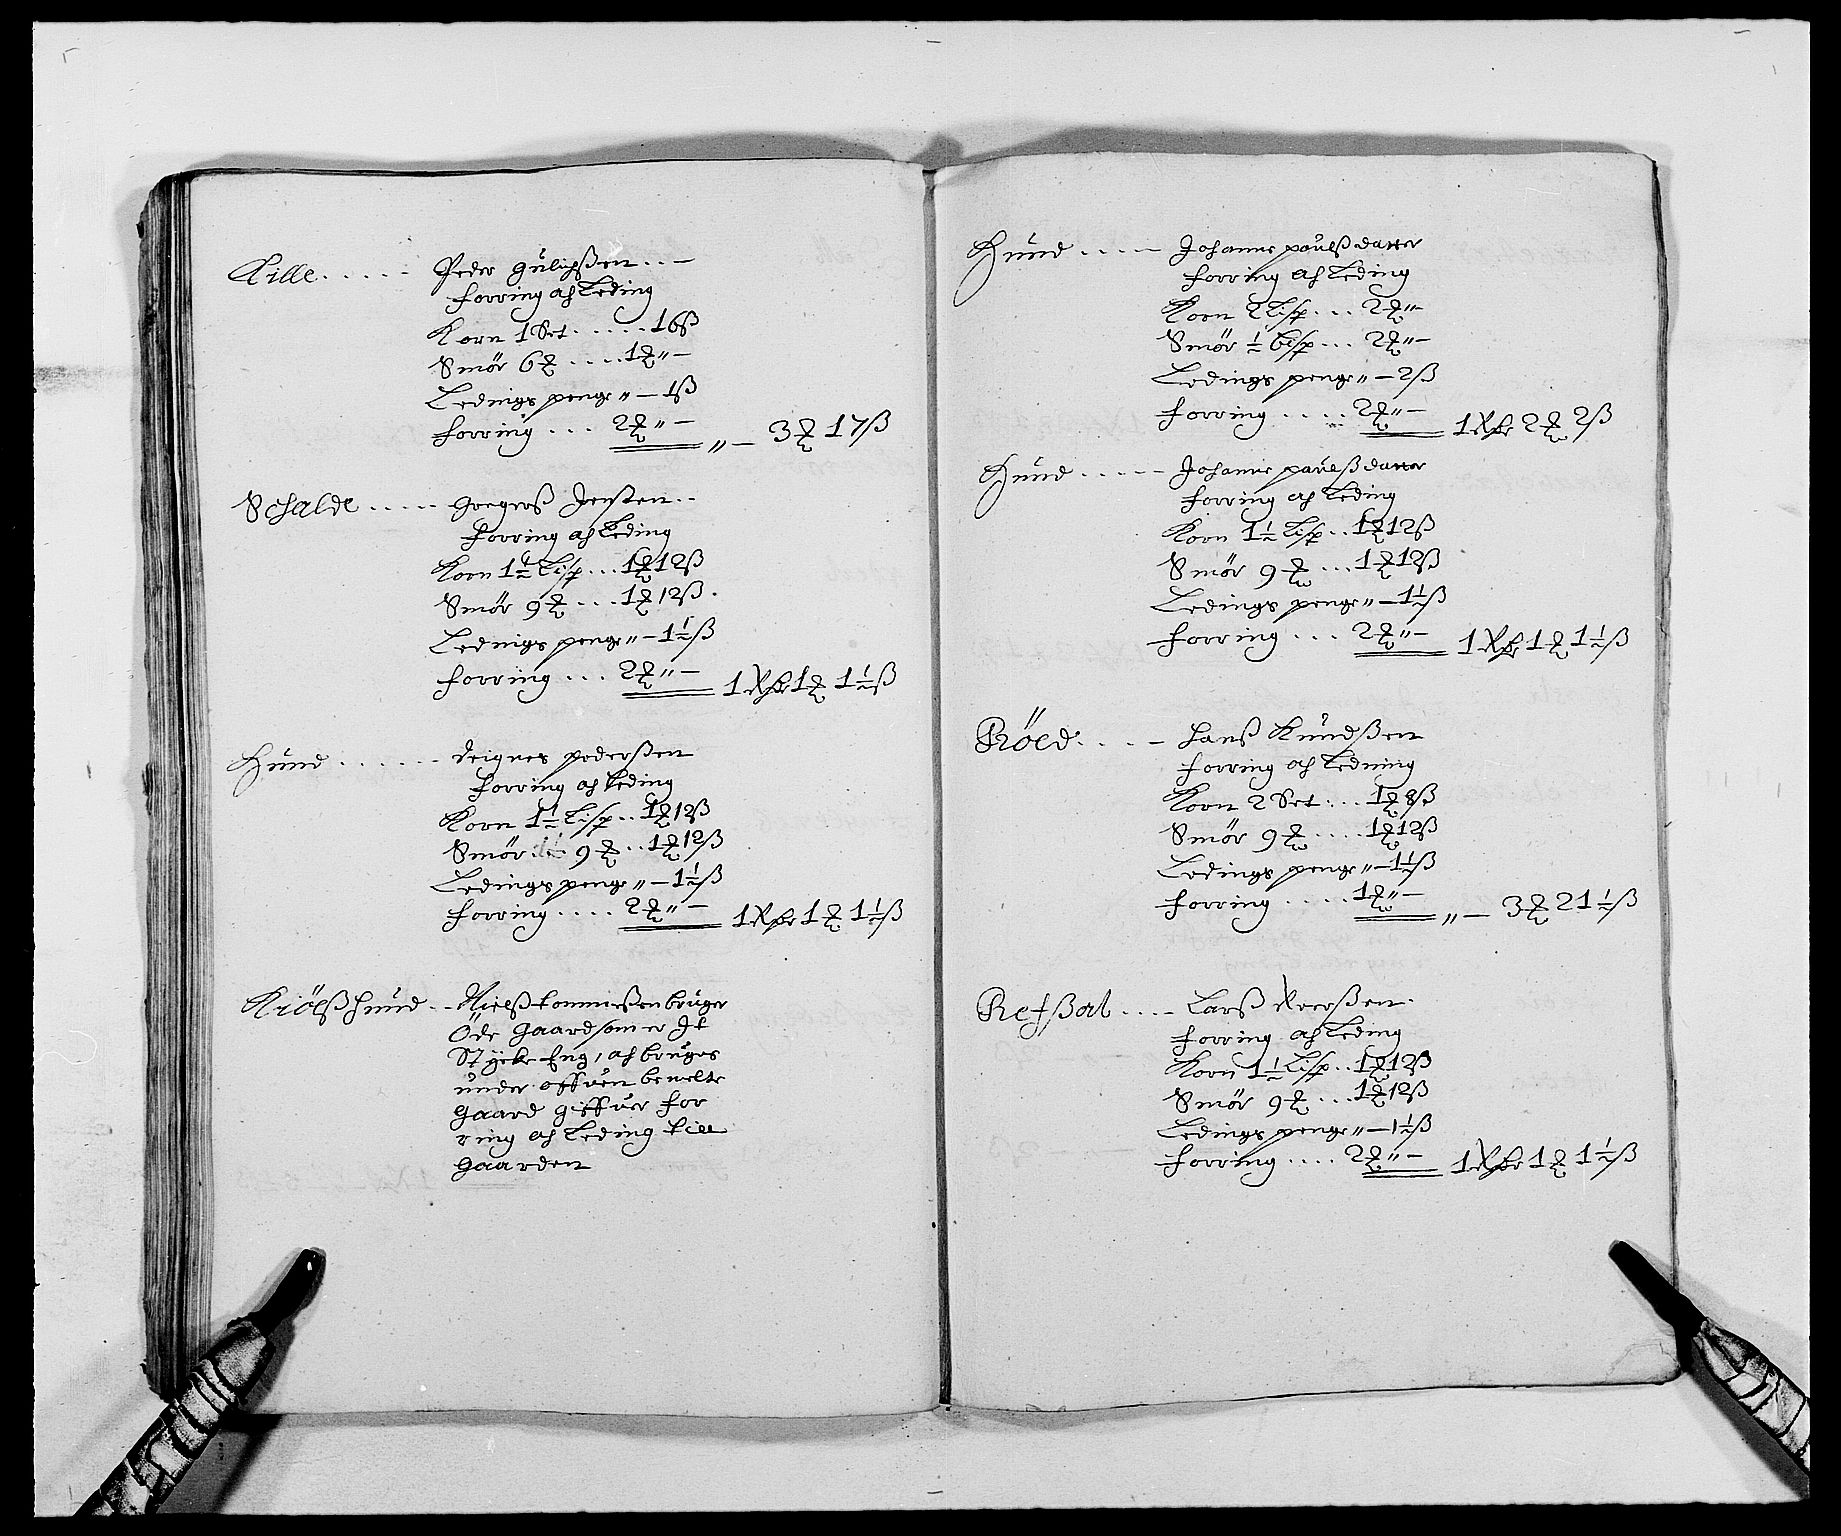 Lille ..... Peder gulichßen ..–
forring och Leding
Korn 1 Set ..... 16ß
Smör 6 ℔ .... 1 ℔ „ –
Ledings penge „ – 1ß
forring ... 2 ℔ „ – „ – 3 ℔ 17ß
Schalde ..... Gregerß Jenßen ..
forring och Leding
Korn 1½ Lisp ... 1 ℔ 12ß
Smör 9 ℔ ... 1 ℔ 12ß.
Ledings penge „ – 1½ß
forring ... 2 ℔ „ – 1 Rdr 1 ℔ 1½ß
Hund ...... Reignes pederßen
forring och Leding
Korn 1½ Lisp .. 1 ℔ 12ß
Smör 9 ℔ .. 1 ℔ 12ß
Ledings penge „ – 1½ß
forring .... 2 ℔ „ – 1 Rdr 1 ℔ 1½ß
Kiölßhund .. Nielß tommeßen bruger
Öde gaard som er It
Stycke Eng, och bruges
under offuen bemelte
gaard giffuer for
ring och Leding till
gaarden
Hund ..... Johanne poulß datter
forring och Leding
Korn 2 Lisp ... 2 ℔ „ –
Smör ½ bisp ... 2 ℔ „ –
Ledings penge „ – 2ß
forring .... 2 ℔ „ – 1 Rdr 2 ℔ 2ß
Hund ..... Johanne paulß datter
forring och Leding
Korn 1½ Lisp .. 1 ℔ 12ß
Smör 9 ℔ ... 1 ℔ 12ß
Ledings penge „ – 1½ß
forring ... 2 ℔ „ – 1 Rdr 1 ℔ 1½ß
Röed .... – Hanß Knudßen
forring och Ledning
Korn 2 Set ... 1 ℔ 8ß
Smör 9 ℔ .... 1 ℔ 12ß
Ledings penge „ – 1½ß
forring ..... 1 ℔ „ – „ – 3 ℔ 21½ß
Refßal ..... Larß Roerßen.
forring och Leding
Korn 1½ Lisp .. 1 ℔ 12ß
Smör 9 ℔ ... 1 ℔ 12ß
Ledings penge „ – 1½ß
forring .... 2 ℔ „ – 1 Rdr 1 ℔ 1½ß